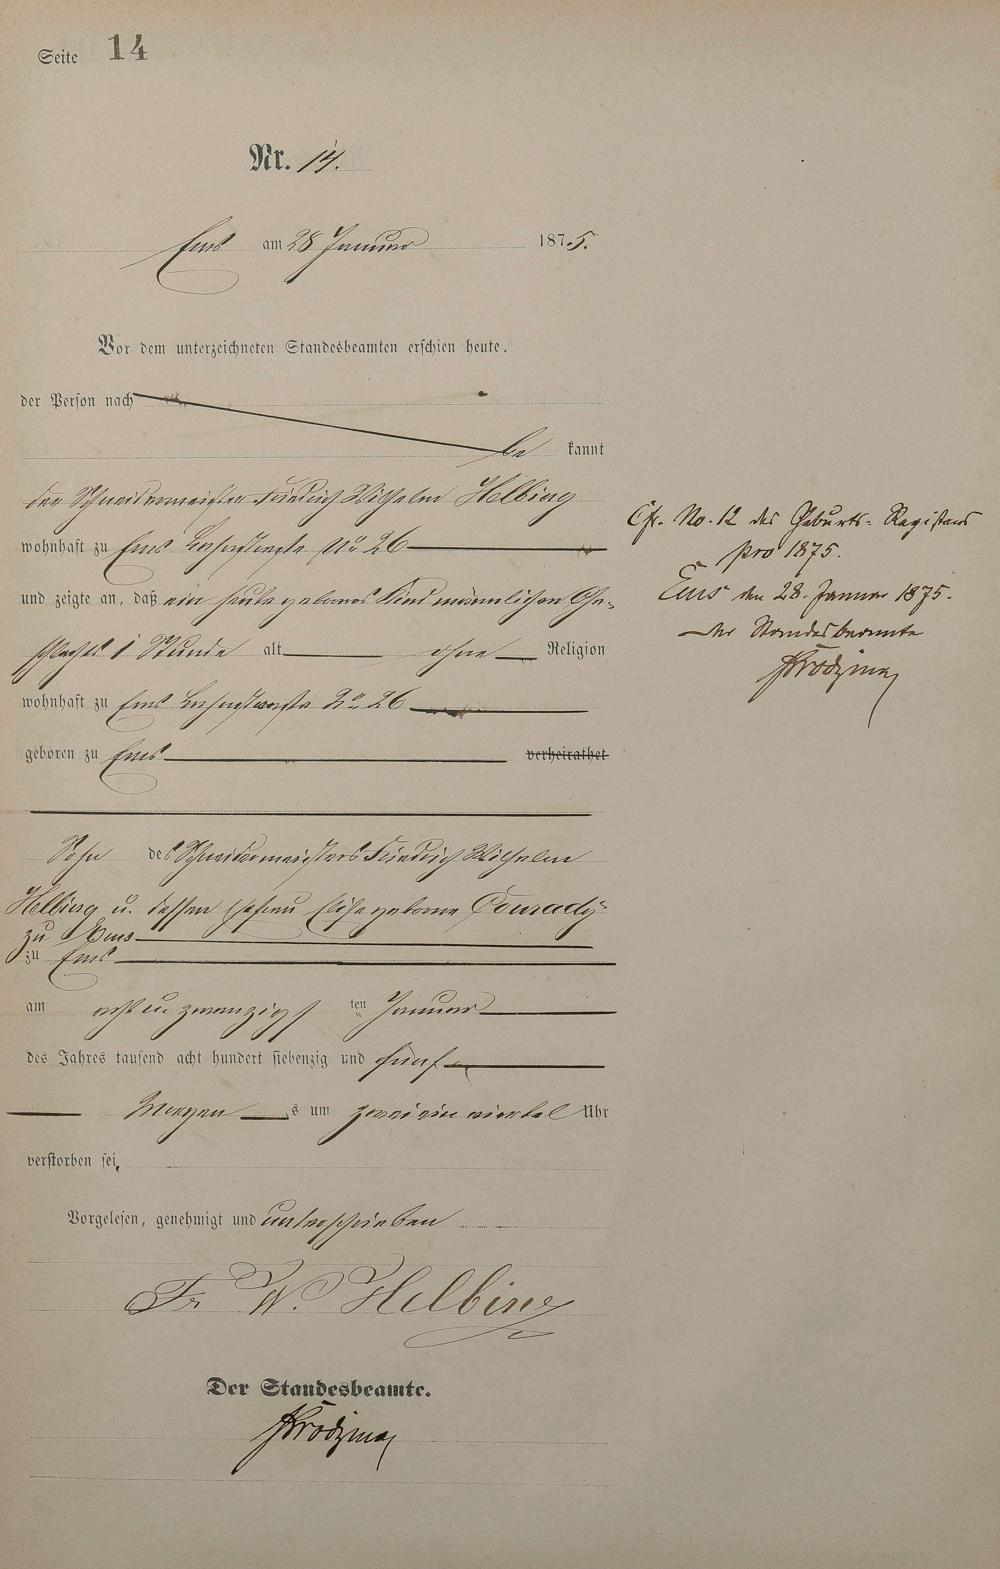 Seite 14
Nr. 14.
Ems am 28 Januar 1875.
Vor dem unterzeichneten Standesbeamten erschien heute.
der Person nach
be kannt
der Schneidermeister Friedrich Wilhelm Helbing
wohnhaft zu Ems No 26
und zeigte an, daß ein heute geborenes Kind männlichen Ge-
schlechts 1 Stunde alt ohne Religion
wohnhaft zu Ems No 26
geboren zu Ems verheirathet
Sohn des Schneidermeisters Friedrich Wilhelm
Helbing u. dessen Ehefrau Elise geborne Conrady
zu Ems
zu Ems
am acht u. zwanzigs ten Januar
des Jahres tausend acht hundert siebenzig und fünf
Morgen s um zwei ein viertel Uhr
verstorben sei.
Vorgelesen, genehmigt und unterschrieben
Fr. W. Helbing
Der Standesbeamte.
Cfr. No. 12 des Geburts-Registers
pro 1875.
Ems den 28. Januar 1875.
der Standesbeamte